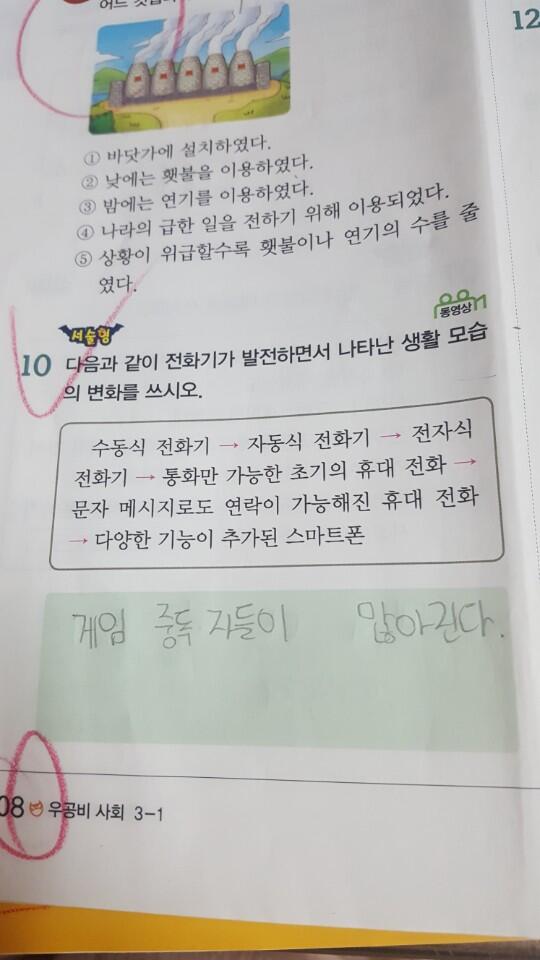 어느 것입니
12
① 바닷가에 설치하였다.
② 낮에는 횃불을 이용하였다.
③ 밤에는 연기를 이용하였다.
④ 나라의 급한 일을 전하기 위해 이용되었다.
⑤ 상황이 위급할수록 횃불이나 연기의 수를 줄
였다.
서술형
동영상
10 다음과 같이 전화기가 발전하면서 나타난 생활 모습
의 변화를 쓰시오.
수동식 전화기 → 자동식 전화기 → 전자식
전화기 → 통화만 가능한 초기의 휴대 전화 →
문자 메시지로도 연락이 가능해진 휴대 전화
→ 다양한 기능이 추가된 스마트폰
게임 중독 자들이 많아진다.
08 우공비 사회 3-1